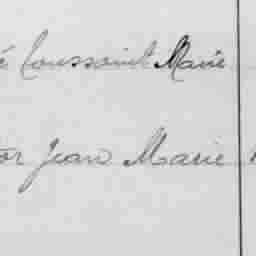 é Toussaint Marie
or Jean Marie